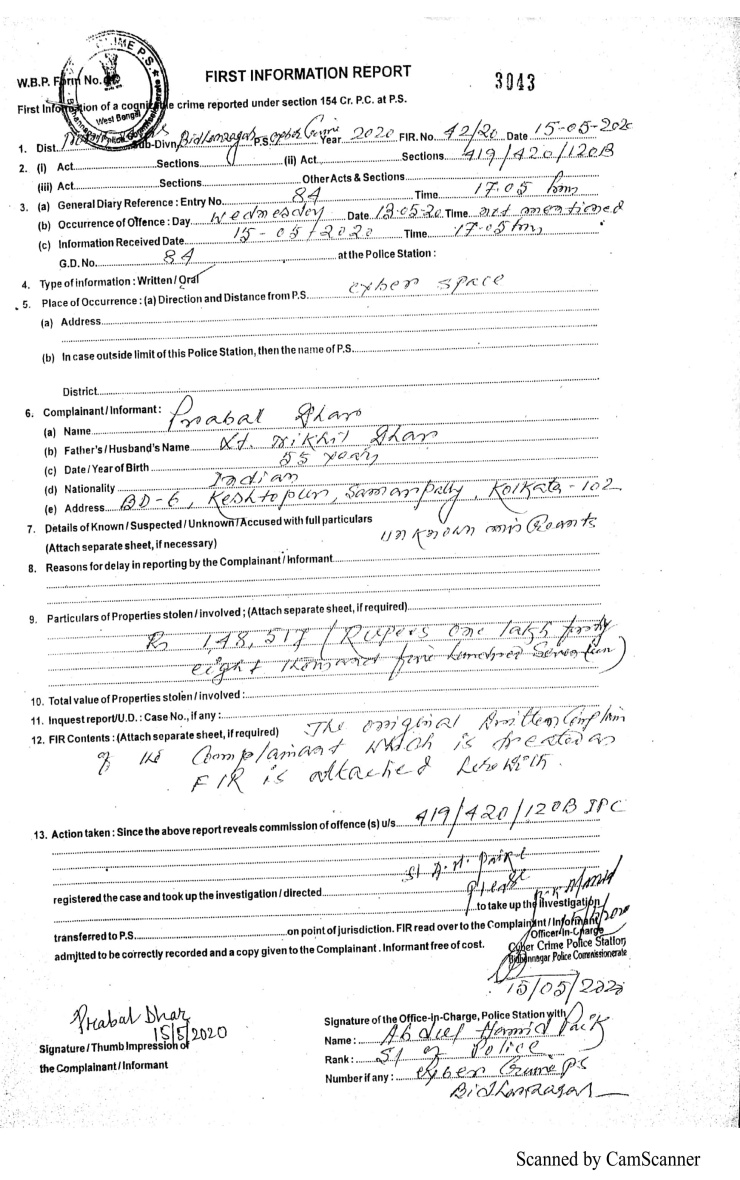 W.B.P. Form No.
FIRST INFORMATION REPORT
3043
First Information of a cognizable crime reported under section 154 Cr. P.C. at P.S.
1. Dist. Sub-Divn. Bidhannagar P.S. Cyber Crime Year 2020 FIR. No. 42/20 Date 15-05-2020
2. (i) Act Sections (ii) Act Sections 419/420/120B
(iii) Act Sections Other Acts & Sections
3. (a) General Diary Reference : Entry No. 84 Time 17.05 hrs
(b) Occurrence of Offence : Day Wednesday Date 13.05.20 Time not mentioned
(c) Information Received Date 15-05/2020 Time 17.05 hrs
G.D. No. 84 at the Police Station :
4. Type of information : Written / Oral
5. Place of Occurrence : (a) Direction and Distance from P.S. cyber space
(a) Address
(b) In case outside limit of this Police Station, then the name of P.S.
District
6. Complainant / Informant :
(a) Name Prabal Dhar
(b) Father's / Husband's Name Lt. Nikhil Dhar
(c) Date / Year of Birth 55 years
(d) Nationality Indian
(e) Address BD-6, Keshtopur, Samarpally, Kolkata - 102
7. Details of Known / Suspected / Unknown / Accused with full particulars
(Attach separate sheet, if necessary) unknown miscreants
8. Reasons for delay in reporting by the Complainant / Informant
9. Particulars of Properties stolen / involved ; (Attach separate sheet, if required)
Rs 1,48,517 (Rupees one lakh forty
eight thousand five hundred seventeen)
10. Total value of Properties stolen / involved :
11. Inquest report/U.D. : Case No., if any :
12. FIR Contents : (Attach separate sheet, if required) The original written complain
of the Complainant which is treated as
FIR is attached herewith.
13. Action taken : Since the above report reveals commission of offence (s) u/s 419/420/120B IPC
SI A.H. Paik
registered the case and took up the investigation / directed please
to take up the investigation
transferred to P.S. on point of jurisdiction. FIR read over to the Complainant / Informant
admitted to be correctly recorded and a copy given to the Complainant . Informant free of cost.
Officer-In-Charge
Cyber Crime Police Station
Bidhannagar Police Commissionerate
15/05/2020
Prabal Dhar
15/5/2020
Signature / Thumb Impression of
the Complainant / Informant
Signature of the Office-in-Charge, Police Station with
Name : Abdul Hamid Paik
Rank : SI of Police
Number if any : Cyber Crime PS
Bidhannagar
Scanned by CamScanner